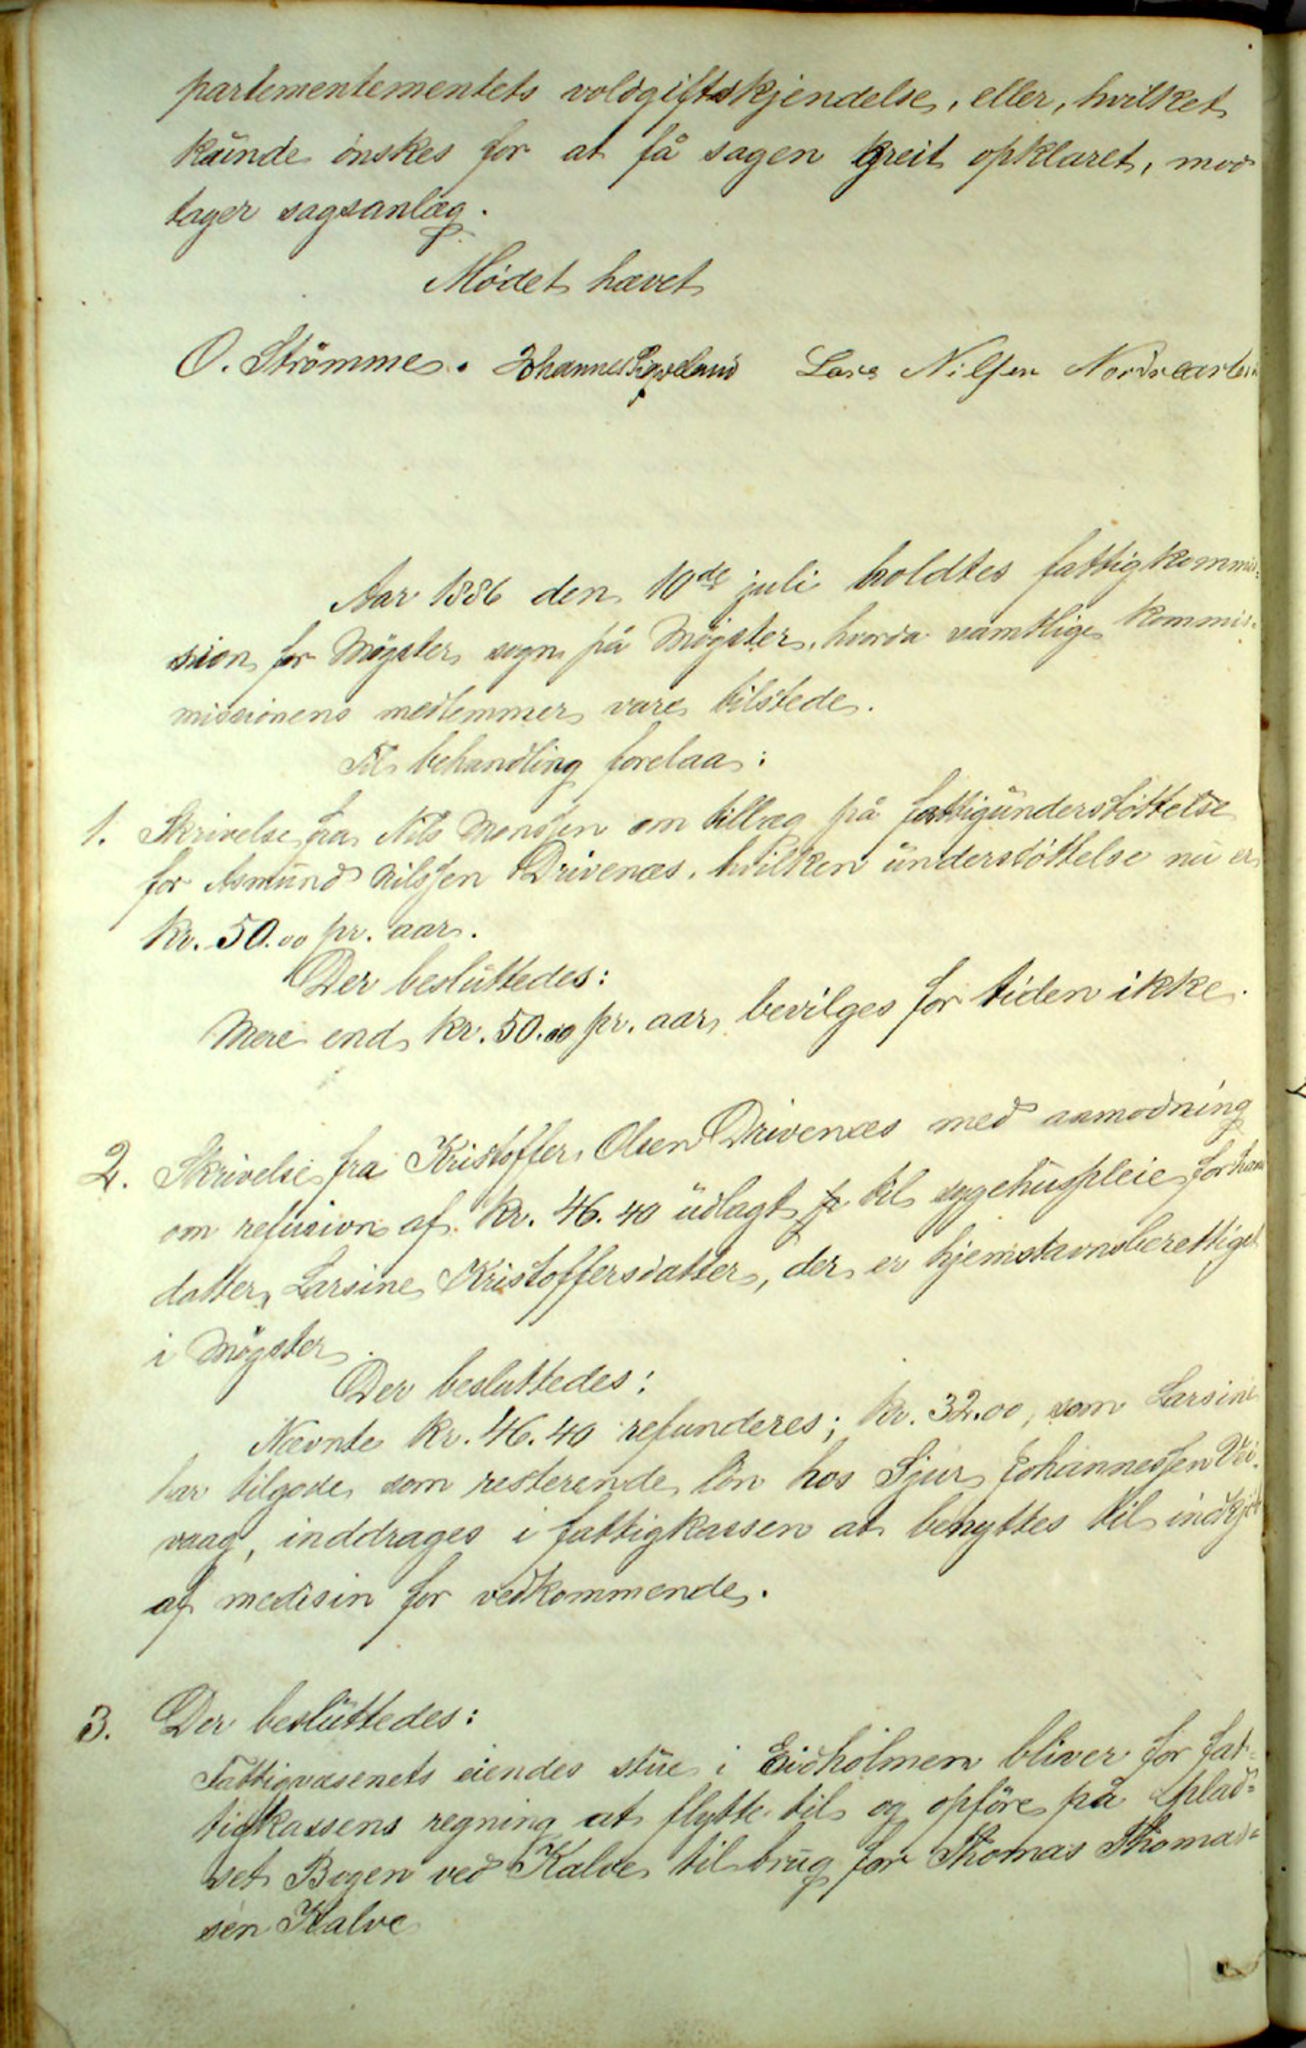 partementementets voldgiftskjendelse, eller, hvilket
kunde ønskes for at få sagen greit opklaret, mod
tager sagsanlæg.
Mødet hævet
O. Strømme. Johannes Lars Nilsen
Aar 1886 den 10de juli holdtes fattigkommis:
sion for Møgster sogn på Møgster, hvorda samtlige kommis:
missionens medlemmer vare tilstede.
Til behandling forelaa:
1. Skrivelse fra Nils Monssen om tillæg på fattigunderstøttelse
for Asmund Nilssen Drivenæs, hvilken understøttelse nu er
kr. 50.00 pr. aar.
Der besluttedes:
Mere end kr. 50.00 pr. aar bevilges for tiden ikke.
2. Skrivelse fra Kristoffer Olsen Drivenæs med anmodning
om refusion af kr. 46.40 udlagt til sygehuspleie for hans
datter, Larsine Kristoffersdatter, der er hjemstavnsberettiget
i Møgster.
Der besluttedes:
Nævnte kr. 46.40 refunderes; kr. 32.00, som Larsine
har tilgode som resterende løn hos Sjur Johannessen Vei:
vaag, inddrages i fattigkassen at benyttes til indkjøb
af medisin for vedkommende.
3. Der besluttedes:
Fattigvæsenets eiendes stue i Eidholmen bliver for fat-
tigkassens regning at flytte til og opføre på plad-
set Bogen ved Kalve til brug for Thomas Thomas-
sen Kalve